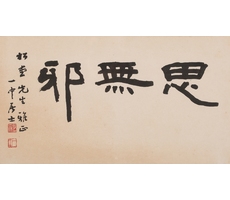 思無邪
先生雅正
居士